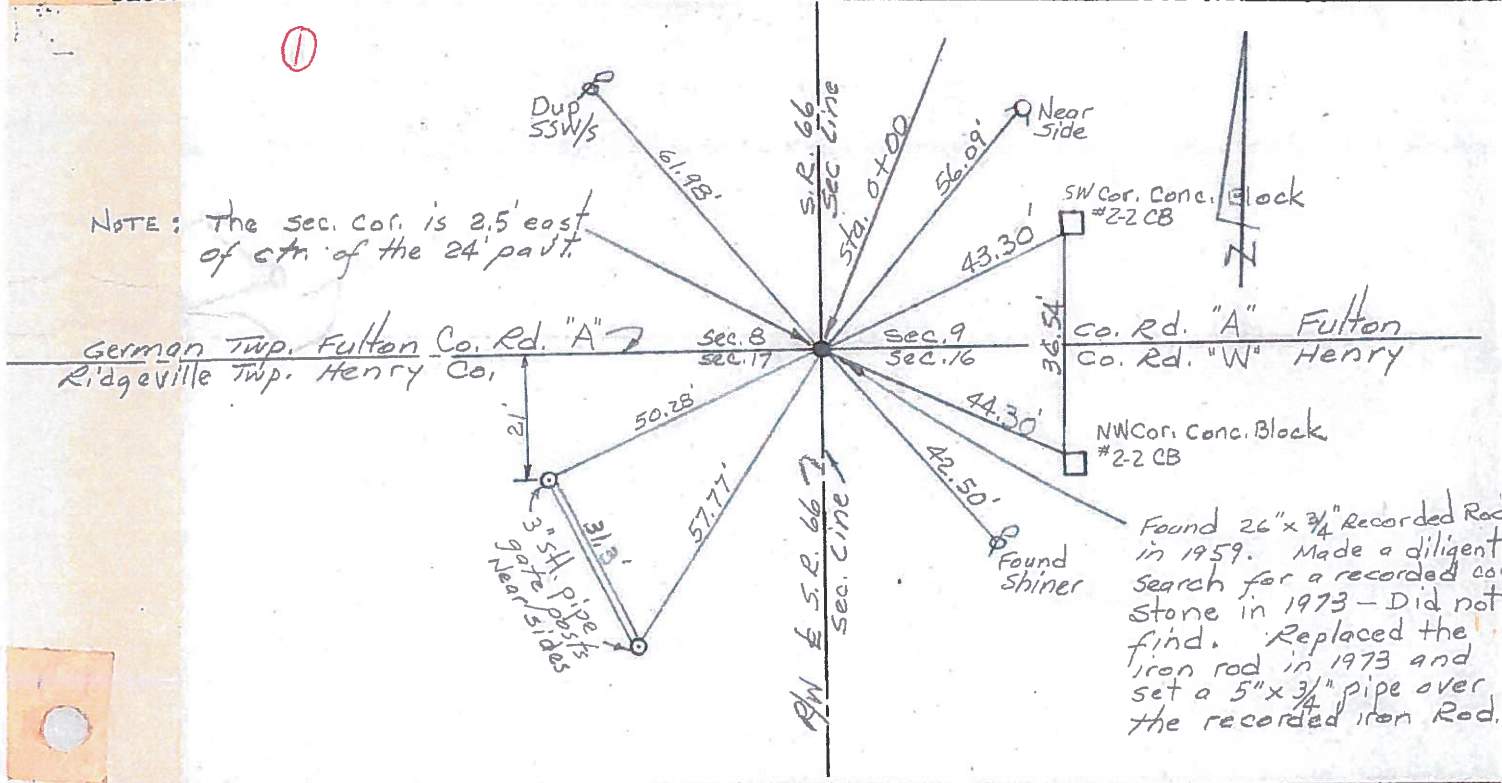 1
Dup
SSW/s
61.98'
S.R. 66
Sec Line
Sta. 0+00
56.09'
Near
Side
SW Cor. Conc. Block
#2-2 CB
43.30'
N
NOTE: The Sec. Cor. is 2.5' east
of ctr. of the 24' pavt.
36.54'
German Twp. Fulton Co. Rd. "A"
Ridgeville Twp. Henry Co.
Sec. 8
Sec. 17
Sec. 9
Sec. 16
Co. Rd. "A" Fulton
Co. Rd. "W" Henry
21'
50.28'
57.77'
31.3'
3" stl. pipe
gate posts
Near sides
44.30'
NW Cor. Conc. Block
#2-2 CB
42.50'
Found
Shiner
R/W ℄ S.R. 66
Sec. Line
Found 26" x 3/4" Recorded Rod
in 1959. Made a diligent
search for a recorded co
Stone in 1973 – Did not
find. Replaced the
iron rod in 1973 and
set a 5" x 3/4" pipe over
the recorded iron Rod.